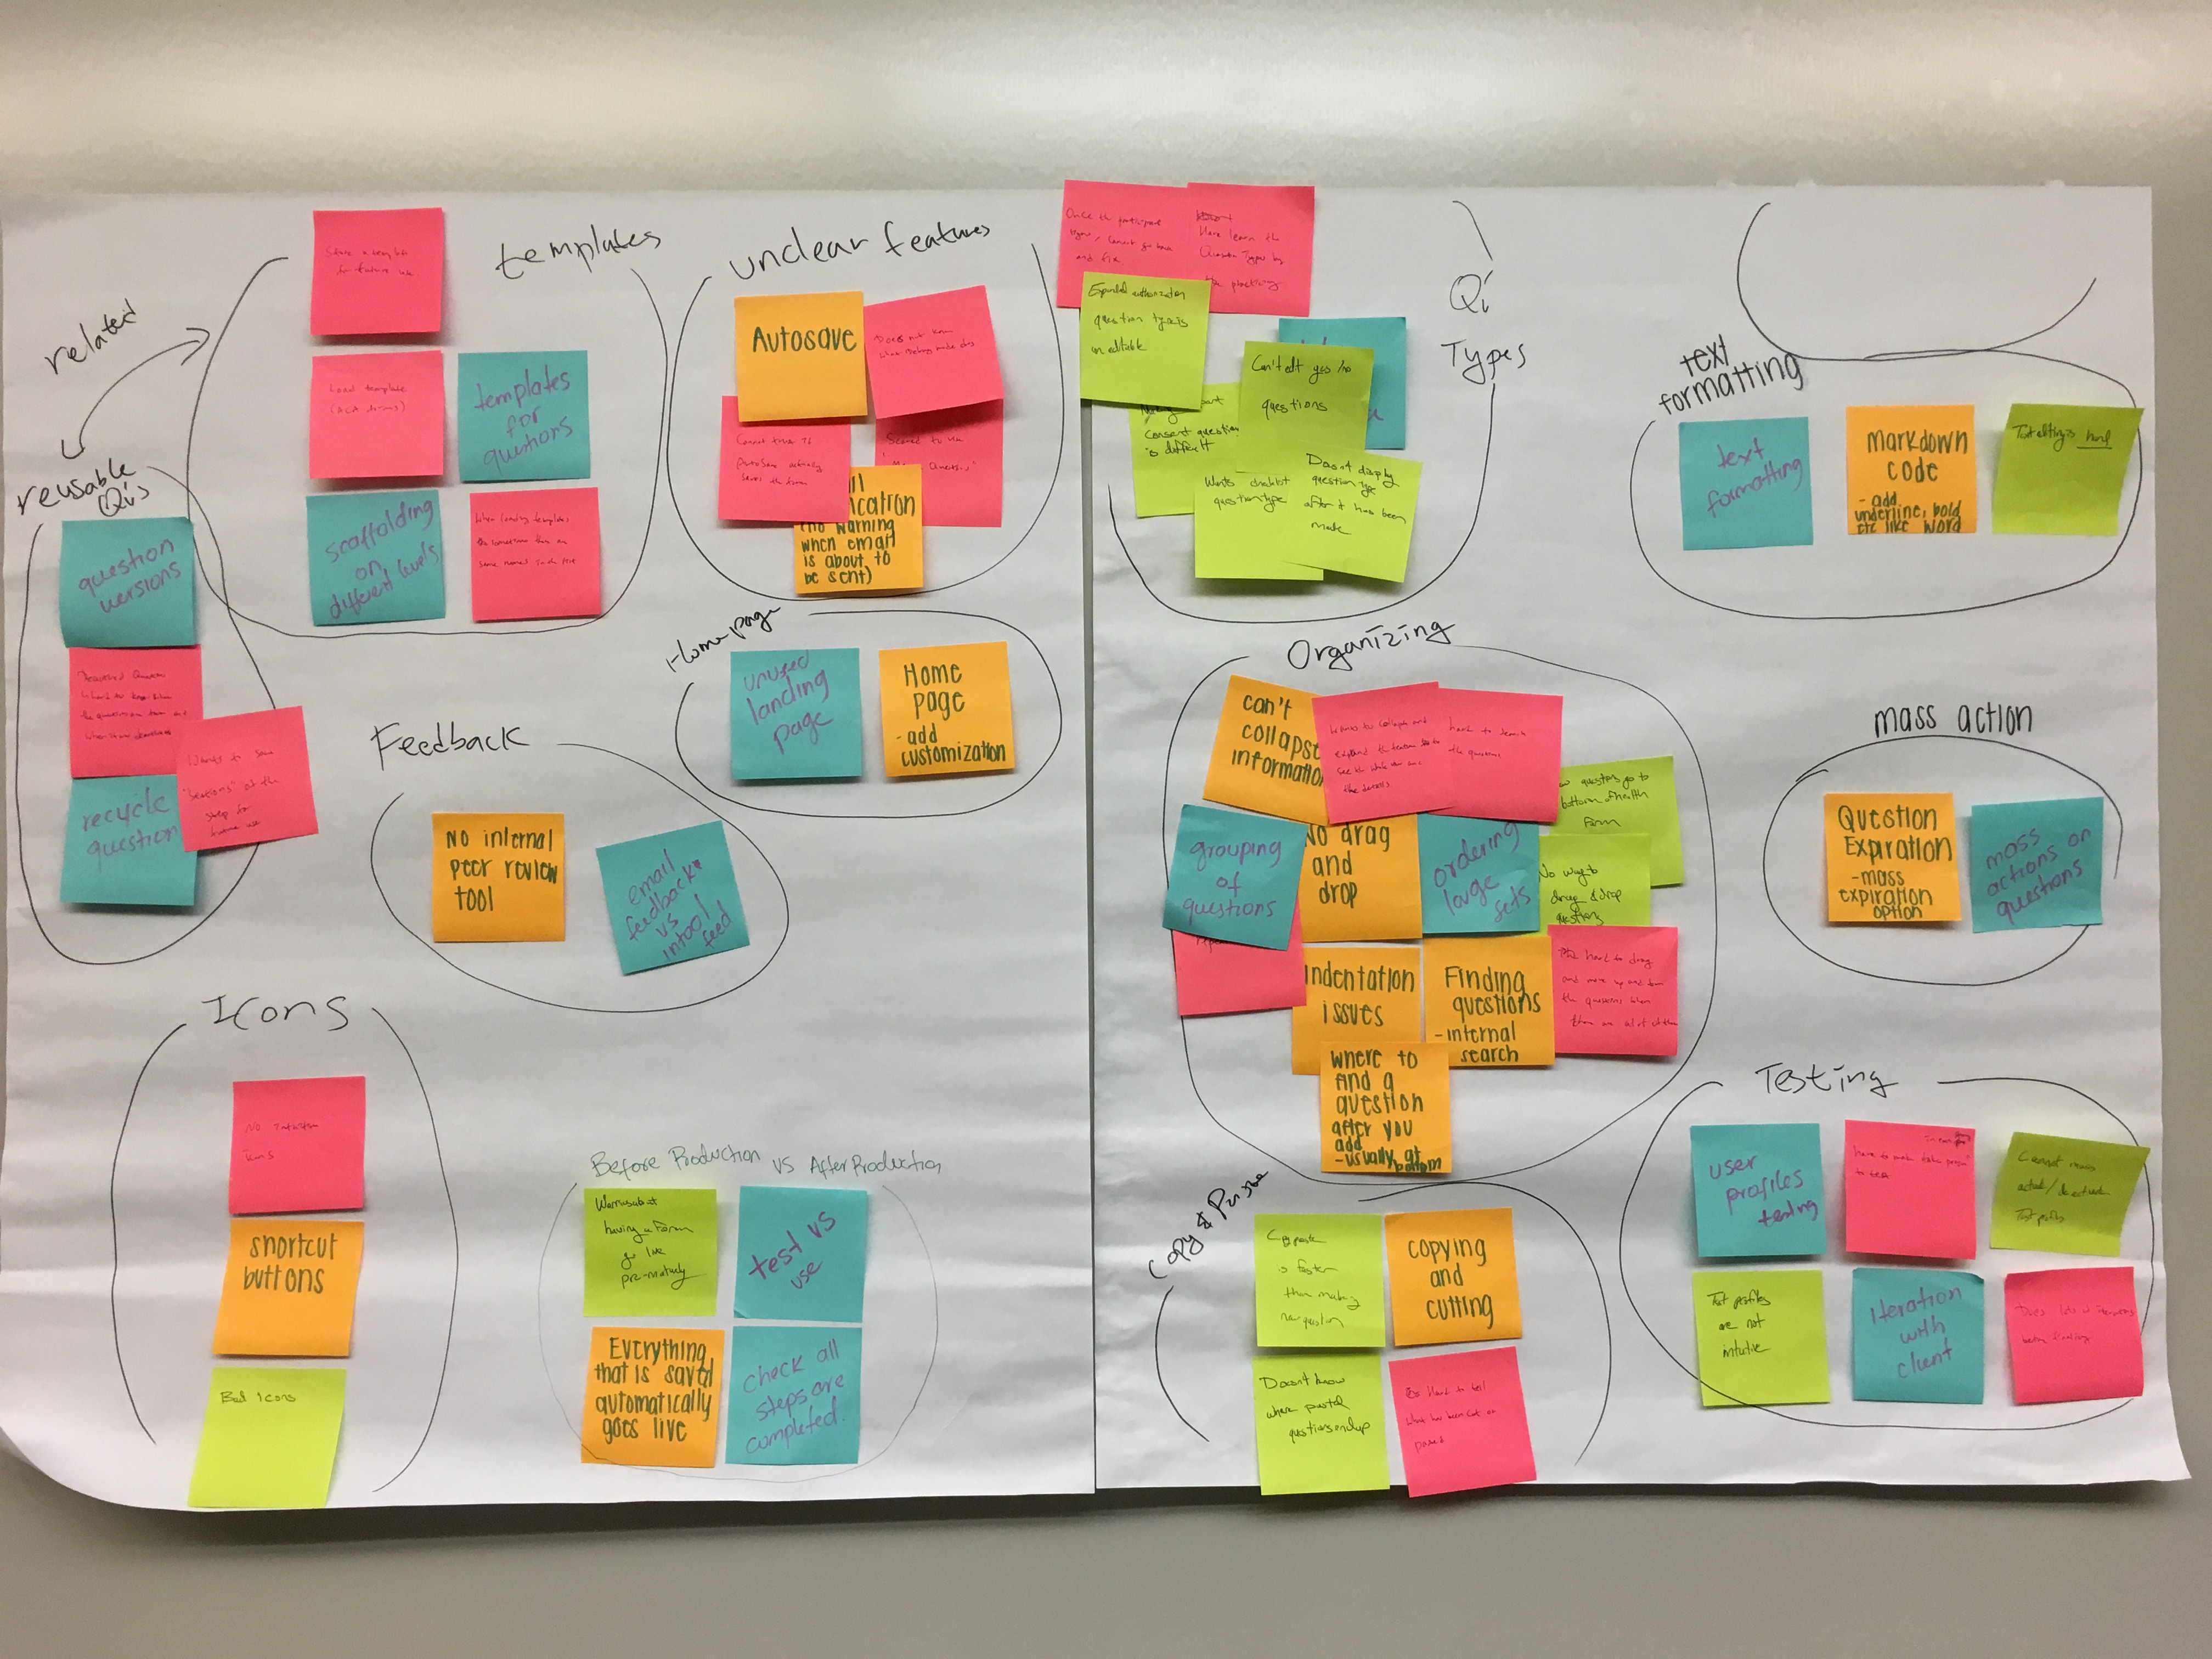 related
templates
Save a template
for future use
Load template
templates
for
questions
scaffolding
on
different levels
When loading templates
same names
reusable
Qi's
question
versions
recycle
question
Wants to save
"sections" of the
step for
future use
unclear features
Autosave
Does not know
what debug mode does
Cannot trust if
AutoSave actually
saves the form
ication
(no warning
when email
is about to
be sent)
Homepage
unused
landing
page
Home
page
- add
customization
Feedback
No internal
peer review
tool
email
feedback
vs
intool
feed
Icons
No intuitive
icons
shortcut
buttons
Bad icons
Before Production vs After Production
Worries about
having a form
go live
pre-maturely
test vs
use
Everything
that is saved
automatically
goes live
check all
steps are
completed.
Qi
Types
Once the participant
signs, cannot go back
and fix
Have learn the
Question Types by
practicing
Expanded authorization
question type is
uneditable
Can't edit yes/no
questions
consent question
is difficult
Wants checklist
question type
Doesn't display
question type
after it has been
made
text
formatting
text
formatting
markdown
code
- add
underline, bold
etc like word
Text editing is hard
Organizing
can't
collapse
information
Wants to collapse and
expand the
see the whole
the details
hard to search
the questions
questions go to
bottom of health
form
grouping
of
questions
No drag
and
drop
ordering
large
sets
No way to
drag & drop
questions
indentation
issues
Finding
questions
- internal
search
hard to drag
and move up and down
the questions when
there are a lot of them
where to
find a
question
after you
add
- usually at
bottom
mass action
Question
Expiration
- mass
expiration
option
mass
actions on
questions
Copy & Paste
Copy paste
is faster
than making
new question
copying
and
cutting
Doesn't know
where pasted
questions end up
Hard to tell
what has been cut or
pasted
Testing
user
profiles
testing
have to make fake person
to test
Cannot mass
activate/deactivate
Test profiles
Test profiles
are not
intuitive
iteration
with
client
Does lots of iterations
before finalizing